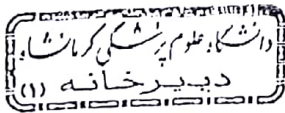 دانشگاه علوم پزشکی کرمانشاه
دبیرخانه (۱)